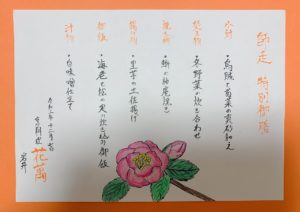 師走 特別御膳
小鉢
・烏賊と菊菜の真砂和え
炊き物
・冬野菜の炊き合わせ
焼き物
・鰤の柚庵焼き
揚げ物
・里芋の土佐揚げ
御飯
・海老と松の実の炊き込み御飯
汁物
・白味噌仕立て
令和二年十二月吉日
花萬
岩井